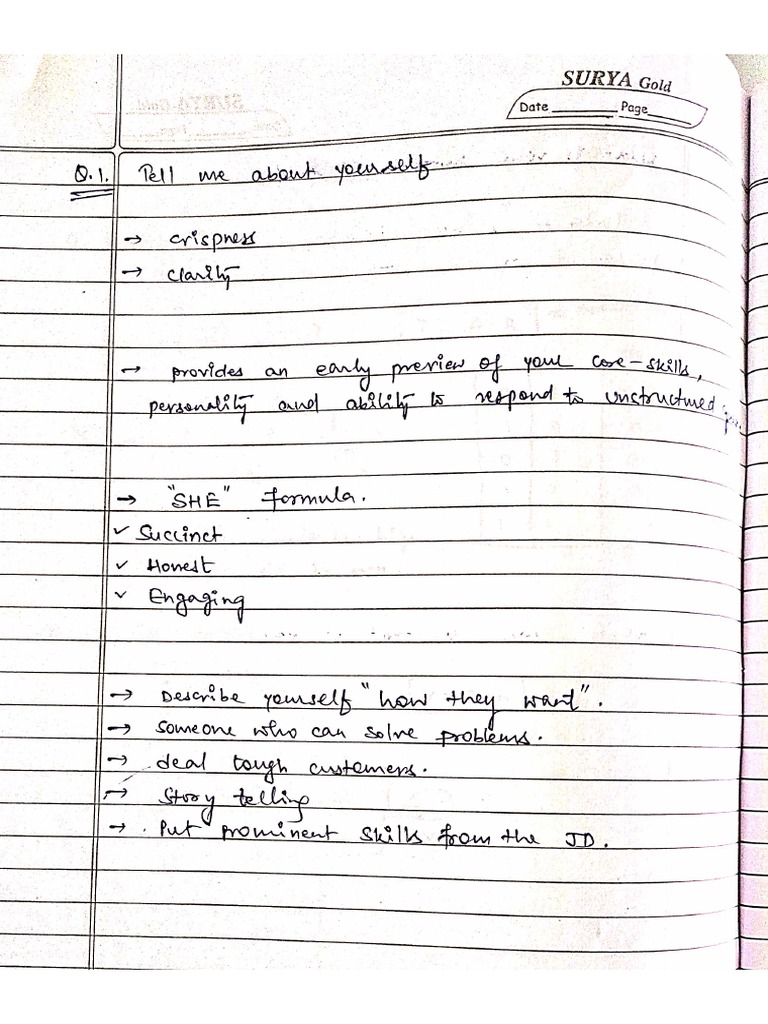 SURYA Gold
Date Page
Q.1. Tell me about yourself
→ crispness
→ clarity
→ provides an early preview of your core-skills,
personality and ability to respond to unstructured
→ "SHE" formula.
✓ Succinct
✓ Honest
✓ Engaging
→ Describe yourself "how they want".
→ Someone who can solve problems.
→ deal tough customers.
→ Story telling
→ Put prominent skills from the JD.